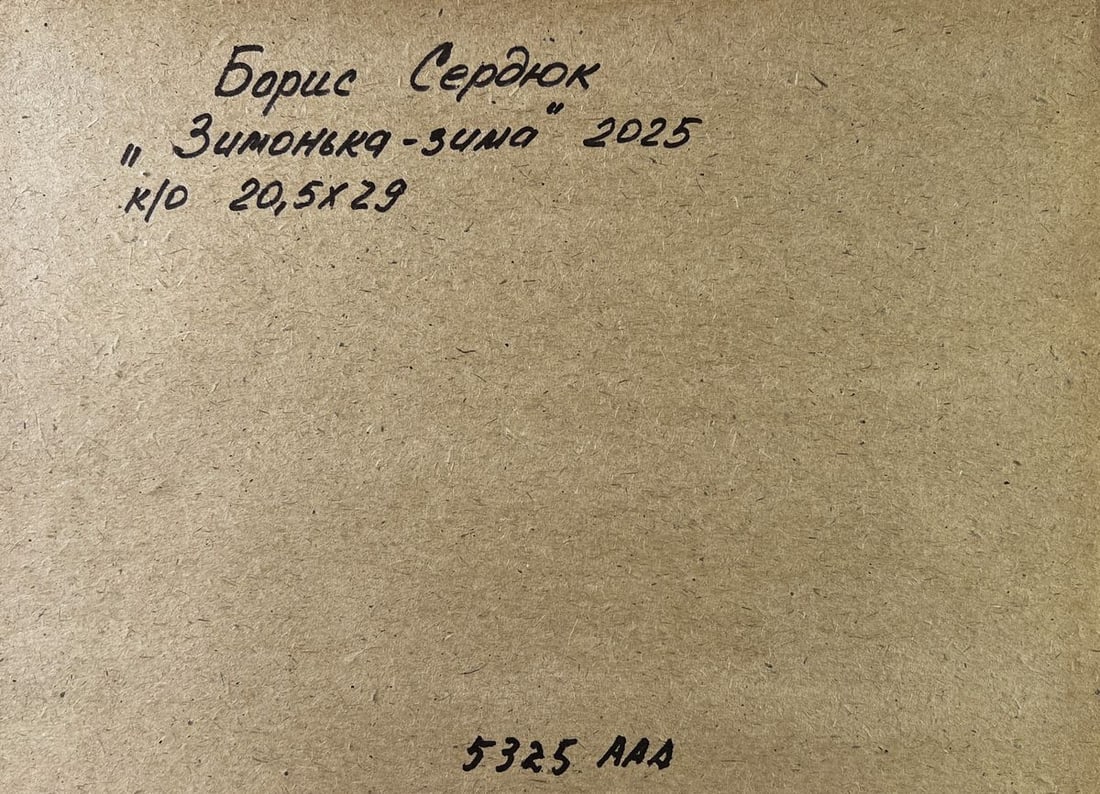 Борис Сердюк
„Зимонька-зима" 2025
к/о 20,5х29
5325 ААА